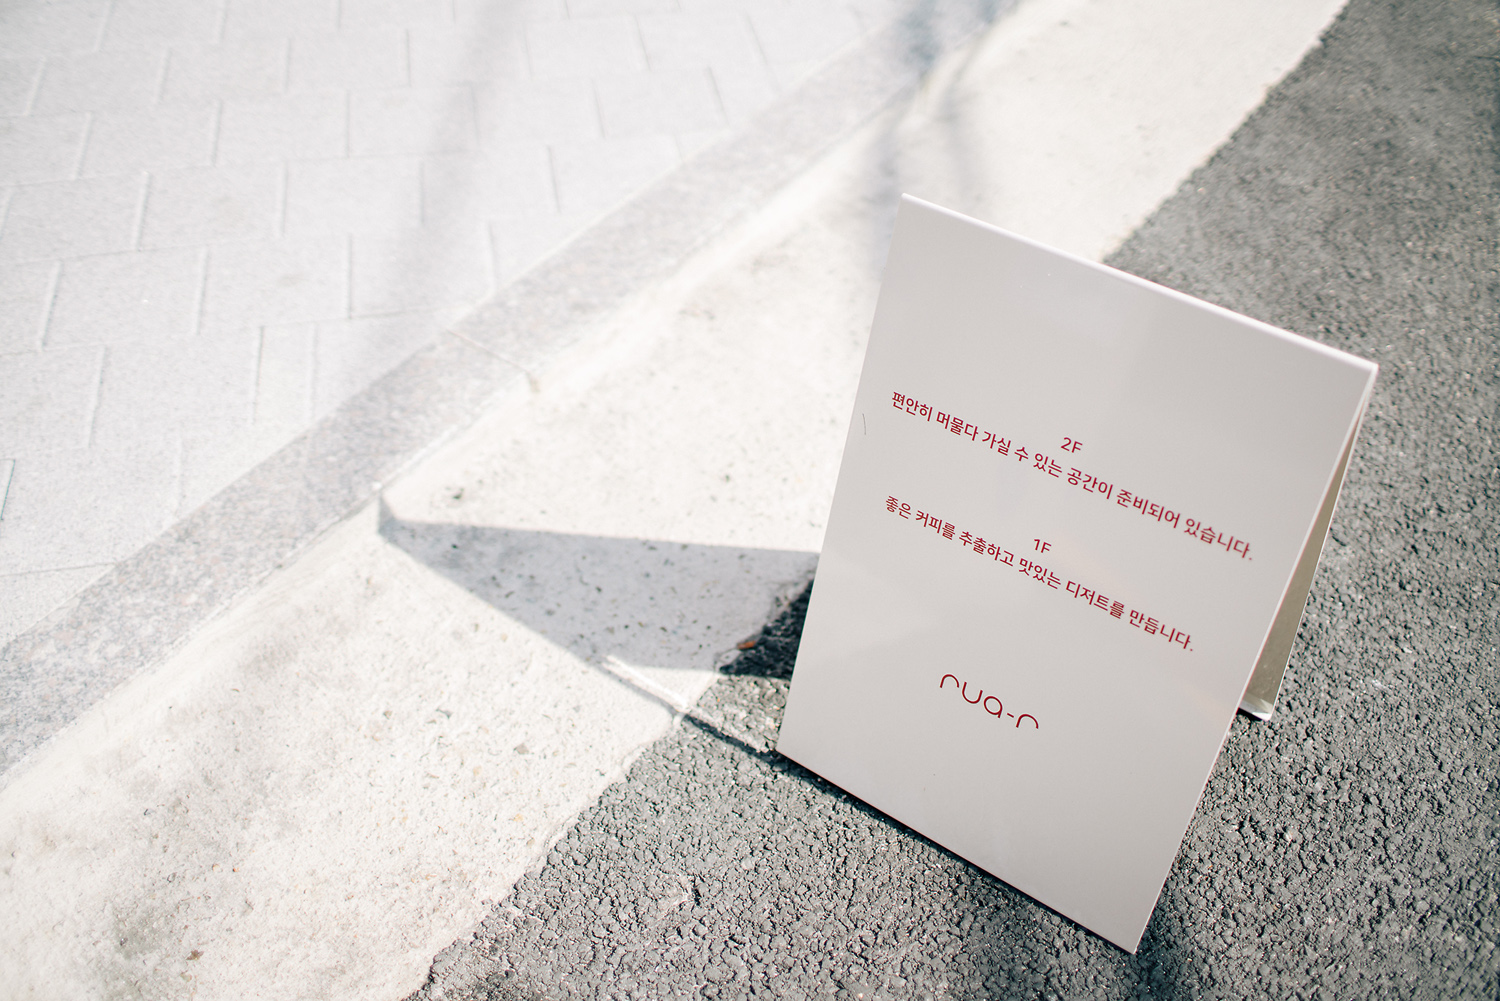 2F
편안히 머물다 가실 수 있는 공간이 준비되어 있습니다.
1F
좋은 커피를 추출하고 맛있는 디저트를 만듭니다.
rua-r